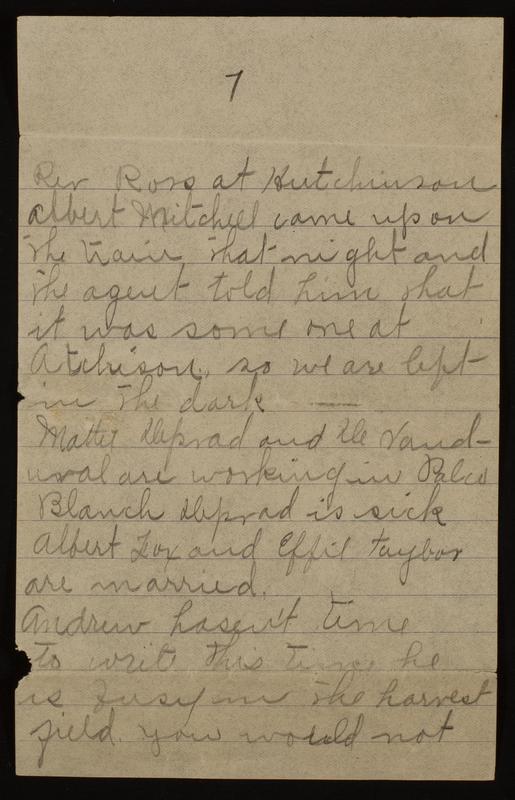 7
Rev Ross at Hutchinson
Albert Mitchell came up on
the train that night and
the agent told him that
it was some one at
Atchison, so we are left
in the dark
Mattie and the Vand-
are working in Palco
Blanch is sick
Albert Fox and Effie Taylor
are married.
Andrew hasen't time
to write this time he
is busy in the harvest
field. you would not